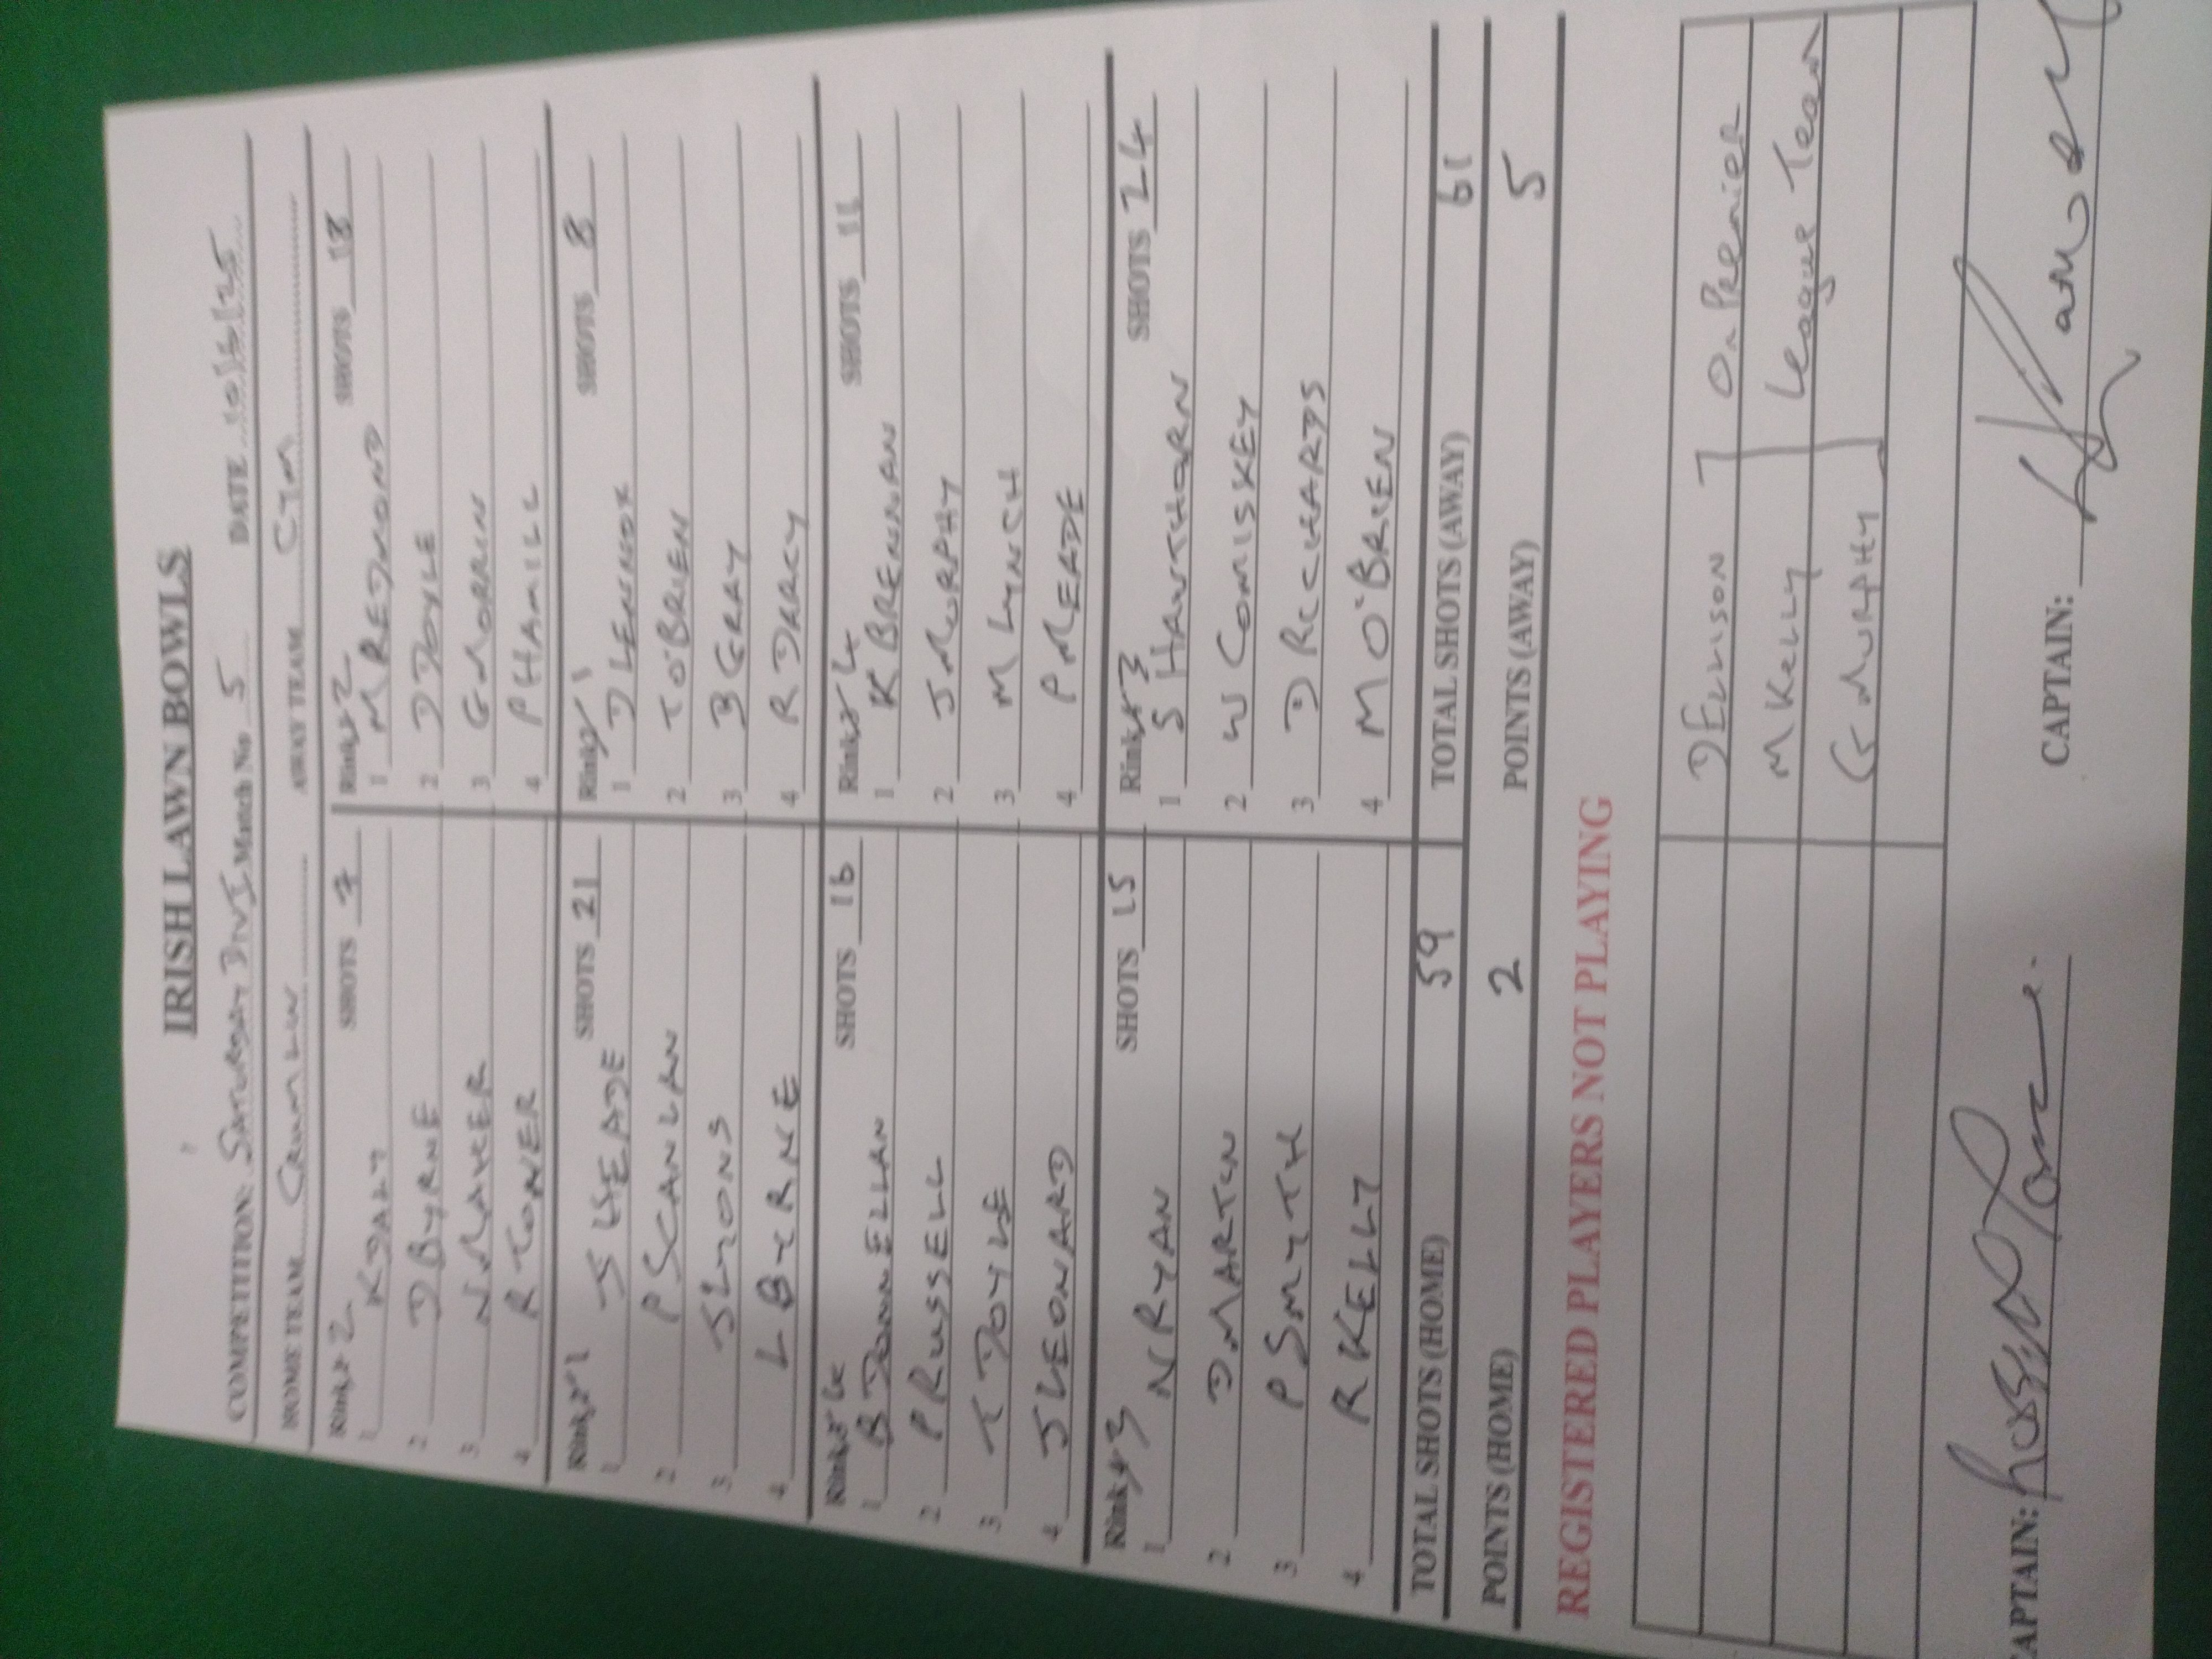 IRISH LAWN BOWLS
COMPETITION: SATURDAY DIV 1 Match No 5 DATE 10/5/25
HOME TEAM CRUMLIN AWAY TEAM CYM
Rink 2 SHOTS 7 Rink 2 SHOTS 18
1 K DALY 1 M REDMOND
2 D BYRNE 2 D DOYLE
3 N MAHER 3 G MORRIN
4 R TONER 4 P HAMILL
Rink 1 SHOTS 21 Rink 1 SHOTS 8
1 J SHEADE 1 D LENNOX
2 P SCANLAN 2 T O'BRIEN
3 J LYONS 3 B GRAY
4 L BYRNE 4 R DARCY
Rink 4 SHOTS 16 Rink 4 SHOTS 11
1 B DONNELLAN 1 K BRENNAN
2 P RUSSELL 2 J MURPHY
3 T DOYLE 3 M LYNCH
4 J LEONARD 4 P MEADE
Rink 3 SHOTS 15 Rink 3 SHOTS 24
1 N RYAN 1 S HAWTHORN
2 D MARTIN 2 W COMISKEY
3 P SMYTH 3 D RICHARDS
4 R KELLY 4 M O'BRIEN
TOTAL SHOTS (HOME) 59 TOTAL SHOTS (AWAY) 61
POINTS (HOME) 2 POINTS (AWAY) 5
REGISTERED PLAYERS NOT PLAYING
D ELLISON On PREMIER
M KELLY League Team
G MURPHY
CAPTAIN: CAPTAIN: